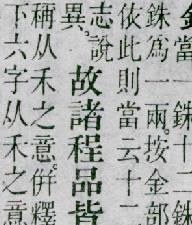 銖爲一兩按金部銖
依此則當云十二
志說
異
故諸程品皆
稱从禾之意併釋
下六字从禾之意